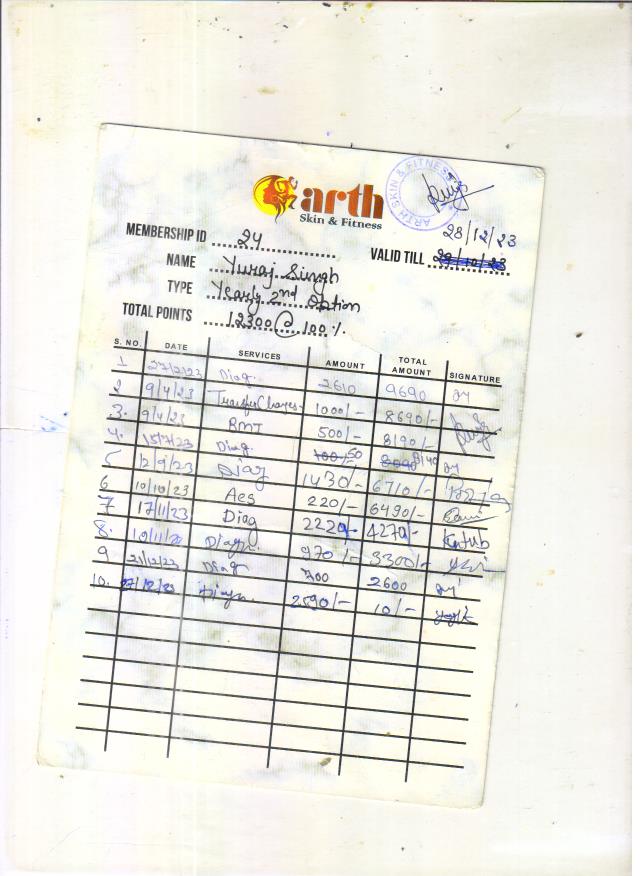 arth
Skin & Fitness
ARTH SKIN & FITNESS
28/12/23
MEMBERSHIP ID 24
VALID TILL 29/10/23
NAME Yuraj Singh
TYPE Yearly 2nd Option
TOTAL POINTS 12300 @ 100%
S. NO. DATE SERVICES AMOUNT TOTAL AMOUNT SIGNATURE
1 27/2/23 Diag. 2610 9690
2 9/4/23 Transfer Charges- 1000/- 8690/-
3. 9/4/23 RMT 500/- 8190/-
4. 15/7/23 Diag. 50 8140
5 12/9/23 Diag 1430/- 6710/-
6 10/10/23 Aes 220/- 6490/-
7 17/11/23 Diag 2220/- 4270/- Kutub
8. 19/11/23 Diagn. 970/- 3300/-
9 21/12/23 Diag 700 2600
10. 27/12/23 Diagn 2590/- 10/-